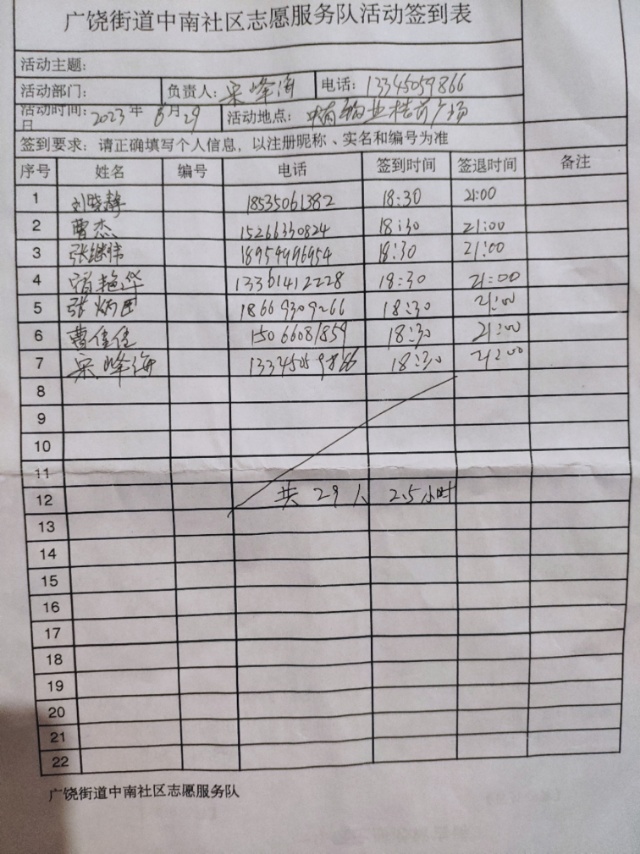 广饶街道中南社区志愿服务队活动签到表
活动主题:
活动部门: 负责人: 宋峰海 电话: 13345059866
活动时间: 2023年6月29日 活动地点: 广场
签到要求: 请正确填写个人信息，以注册昵称、实名和编号为准
序号 姓名 编号 电话 签到时间 签退时间 备注
1 刘晓静 18535061382 18:30 21:00
2 曹杰 15266330824 18:30 21:00
3 张继伟 18954996954 18:30 21:00
4 艳华 13361412228 18:30 21:00
5 张炳国 18669309266 18:30 21:00
6 曹佳佳 15066081859 18:30 21:00
7 宋峰海 13345059866 18:30 21:00
8
9
10
11
12 共29人 2.5小时
13
14
15
16
17
18
19
20
21
22
广饶街道中南社区志愿服务队